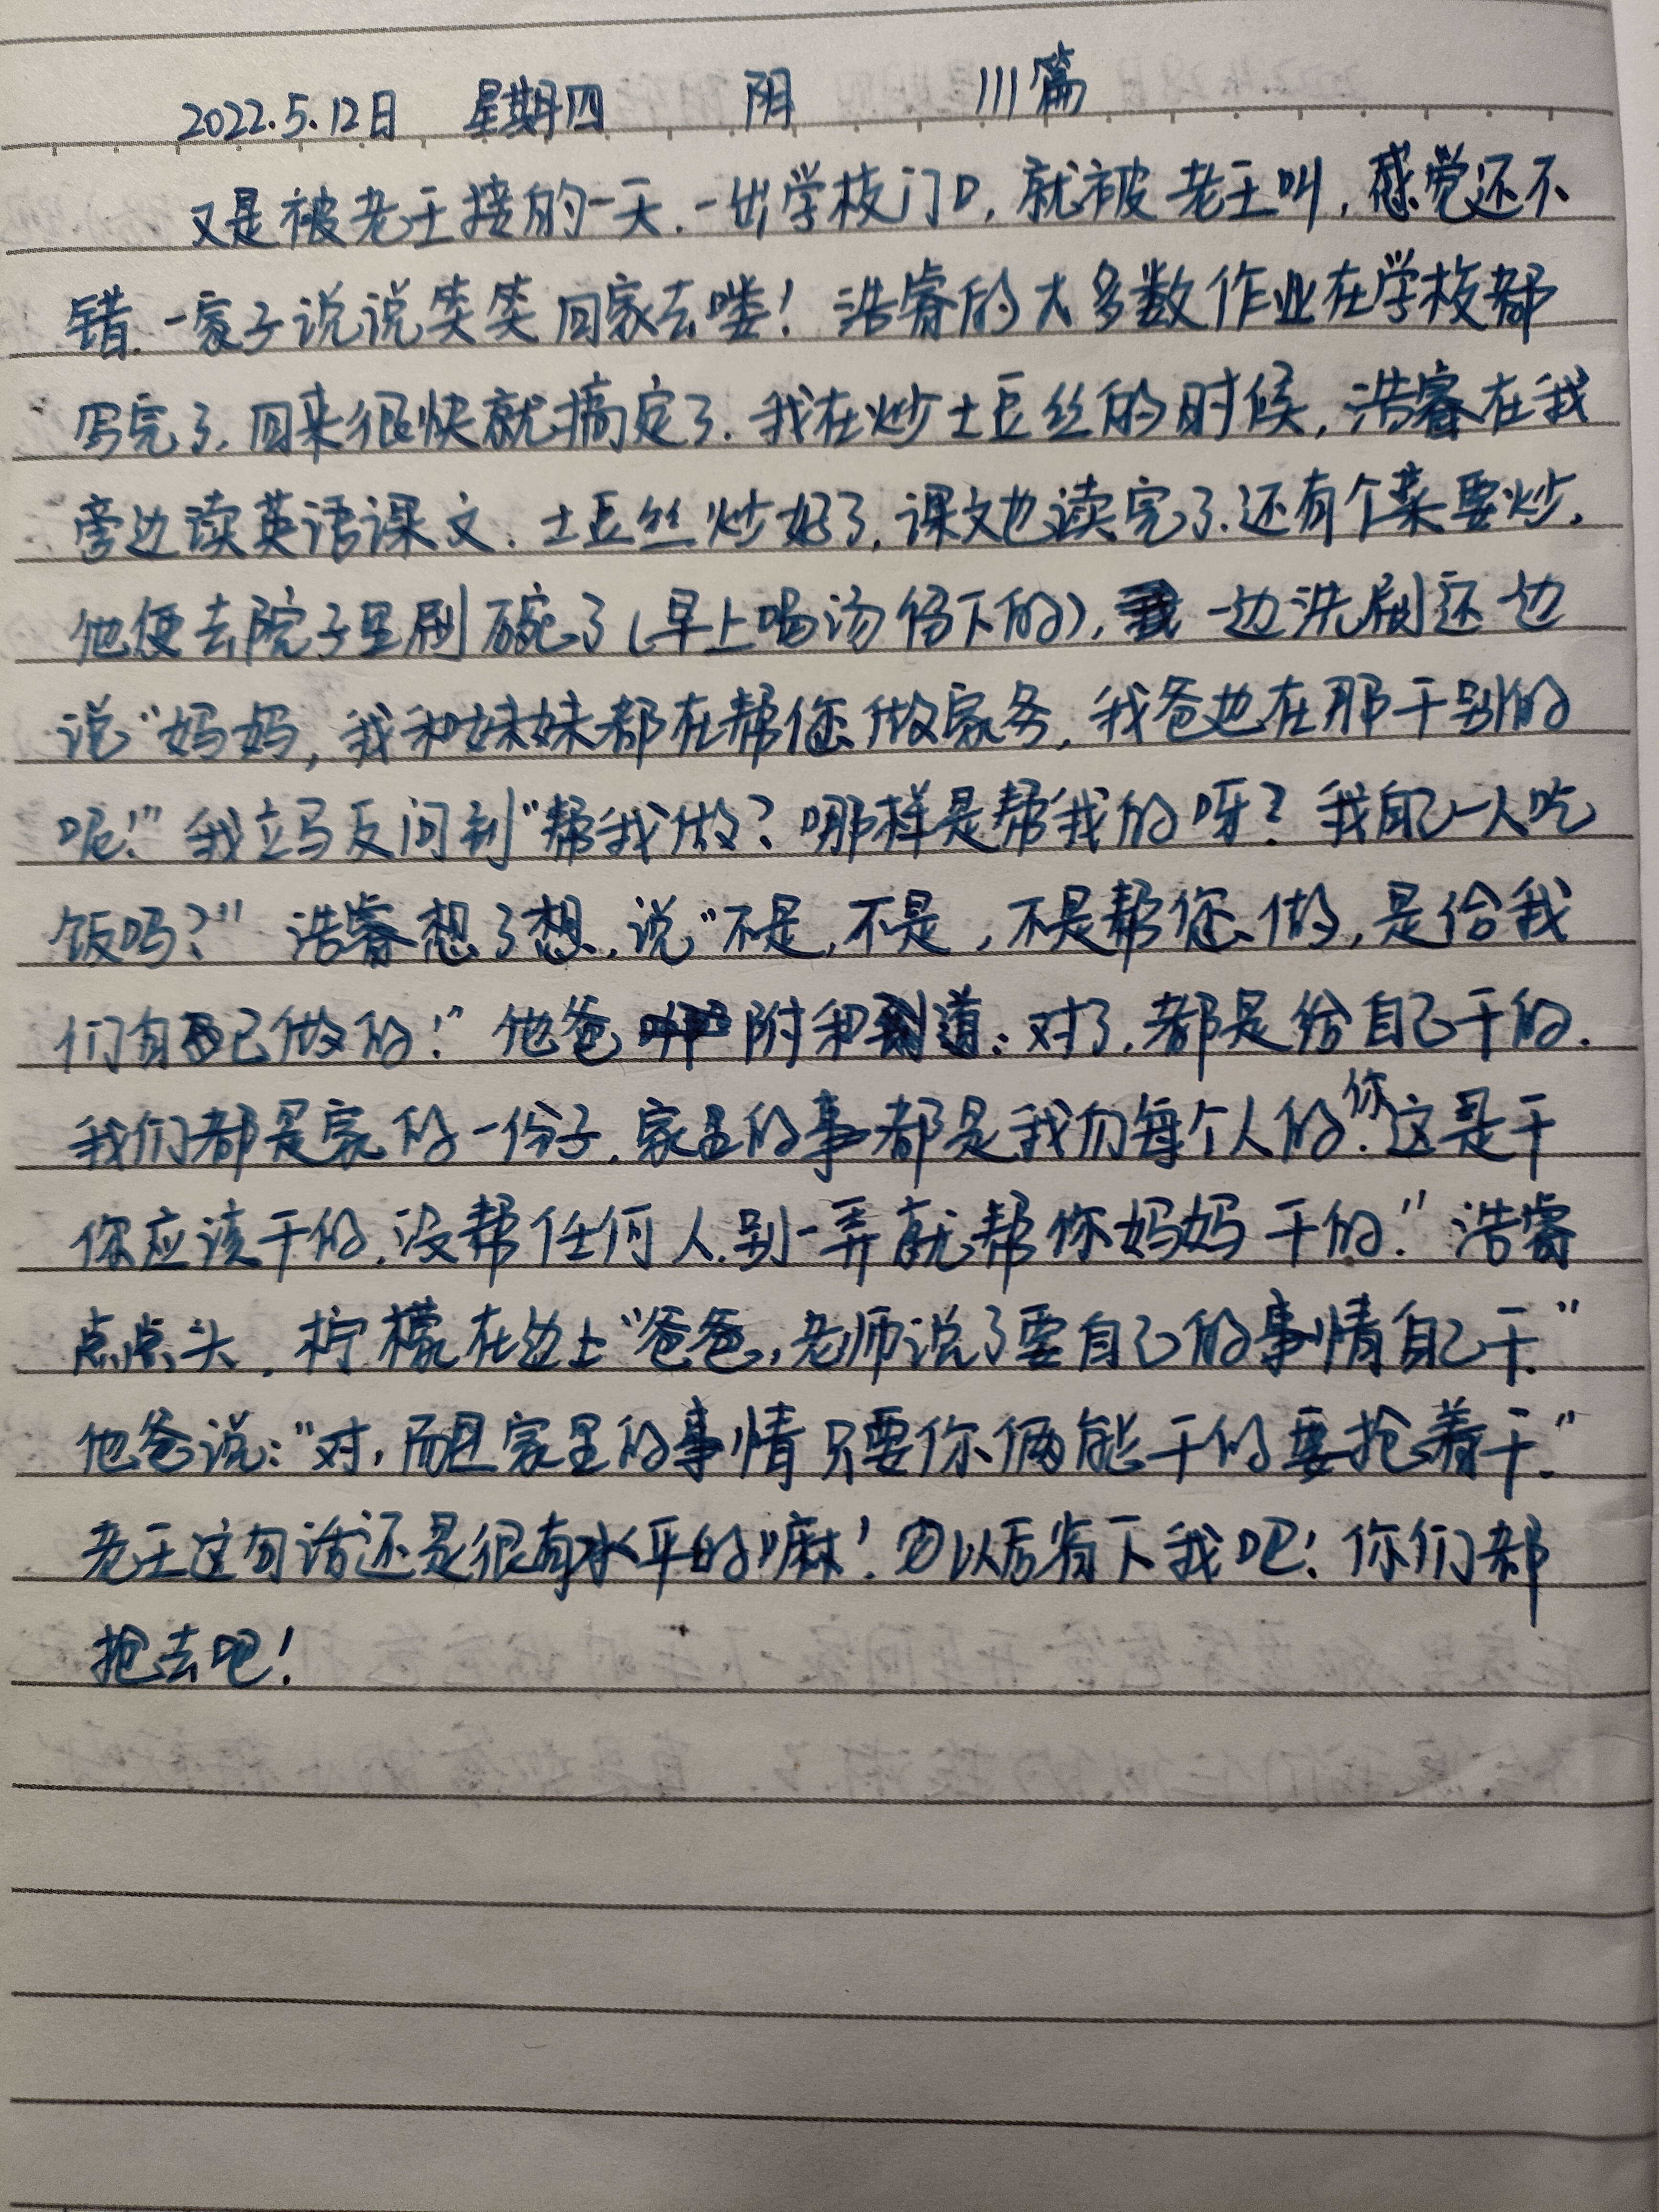 2022.5.12日 星期四 阴 111篇
又是被老王接的一天.一出学校门口,就被老王叫,感觉还不
错.一家子说说笑笑回家去喽!浩睿的大多数作业在学校都
写完了.回来很快就搞定了.我在炒土豆丝的时候,浩睿在我
旁边读英语课文.土豆丝炒好了,课文也读完了.还有个菜要炒,
他便去院子里刷碗了(早上喝汤俭下的),一边洗刷还一边
说"妈妈,我和妹妹都在帮您做家务,我爸也在那干别的
呢!"我立马反问到"帮我做?哪样是帮我的呀?我自己一人吃
饭吗?"浩睿想了想,说"不是,不是,不是帮您做,是给我
们自己做的!"他爸附和道:对了.都是给自己干的.
我们都是家的一份子.家里的事都是我们每个人的.你这是干
你应该干的.没帮任何人.别一弄就帮你妈妈干的."浩睿
点点头,柠檬在边上"爸爸,老师说了要自己的事情自己干."
他爸说:"对,而且家里的事情只要你俩能干的要抢着干."
老王这句话还是很有水平的嘛!以后省下我吧!你们都
抢去吧!